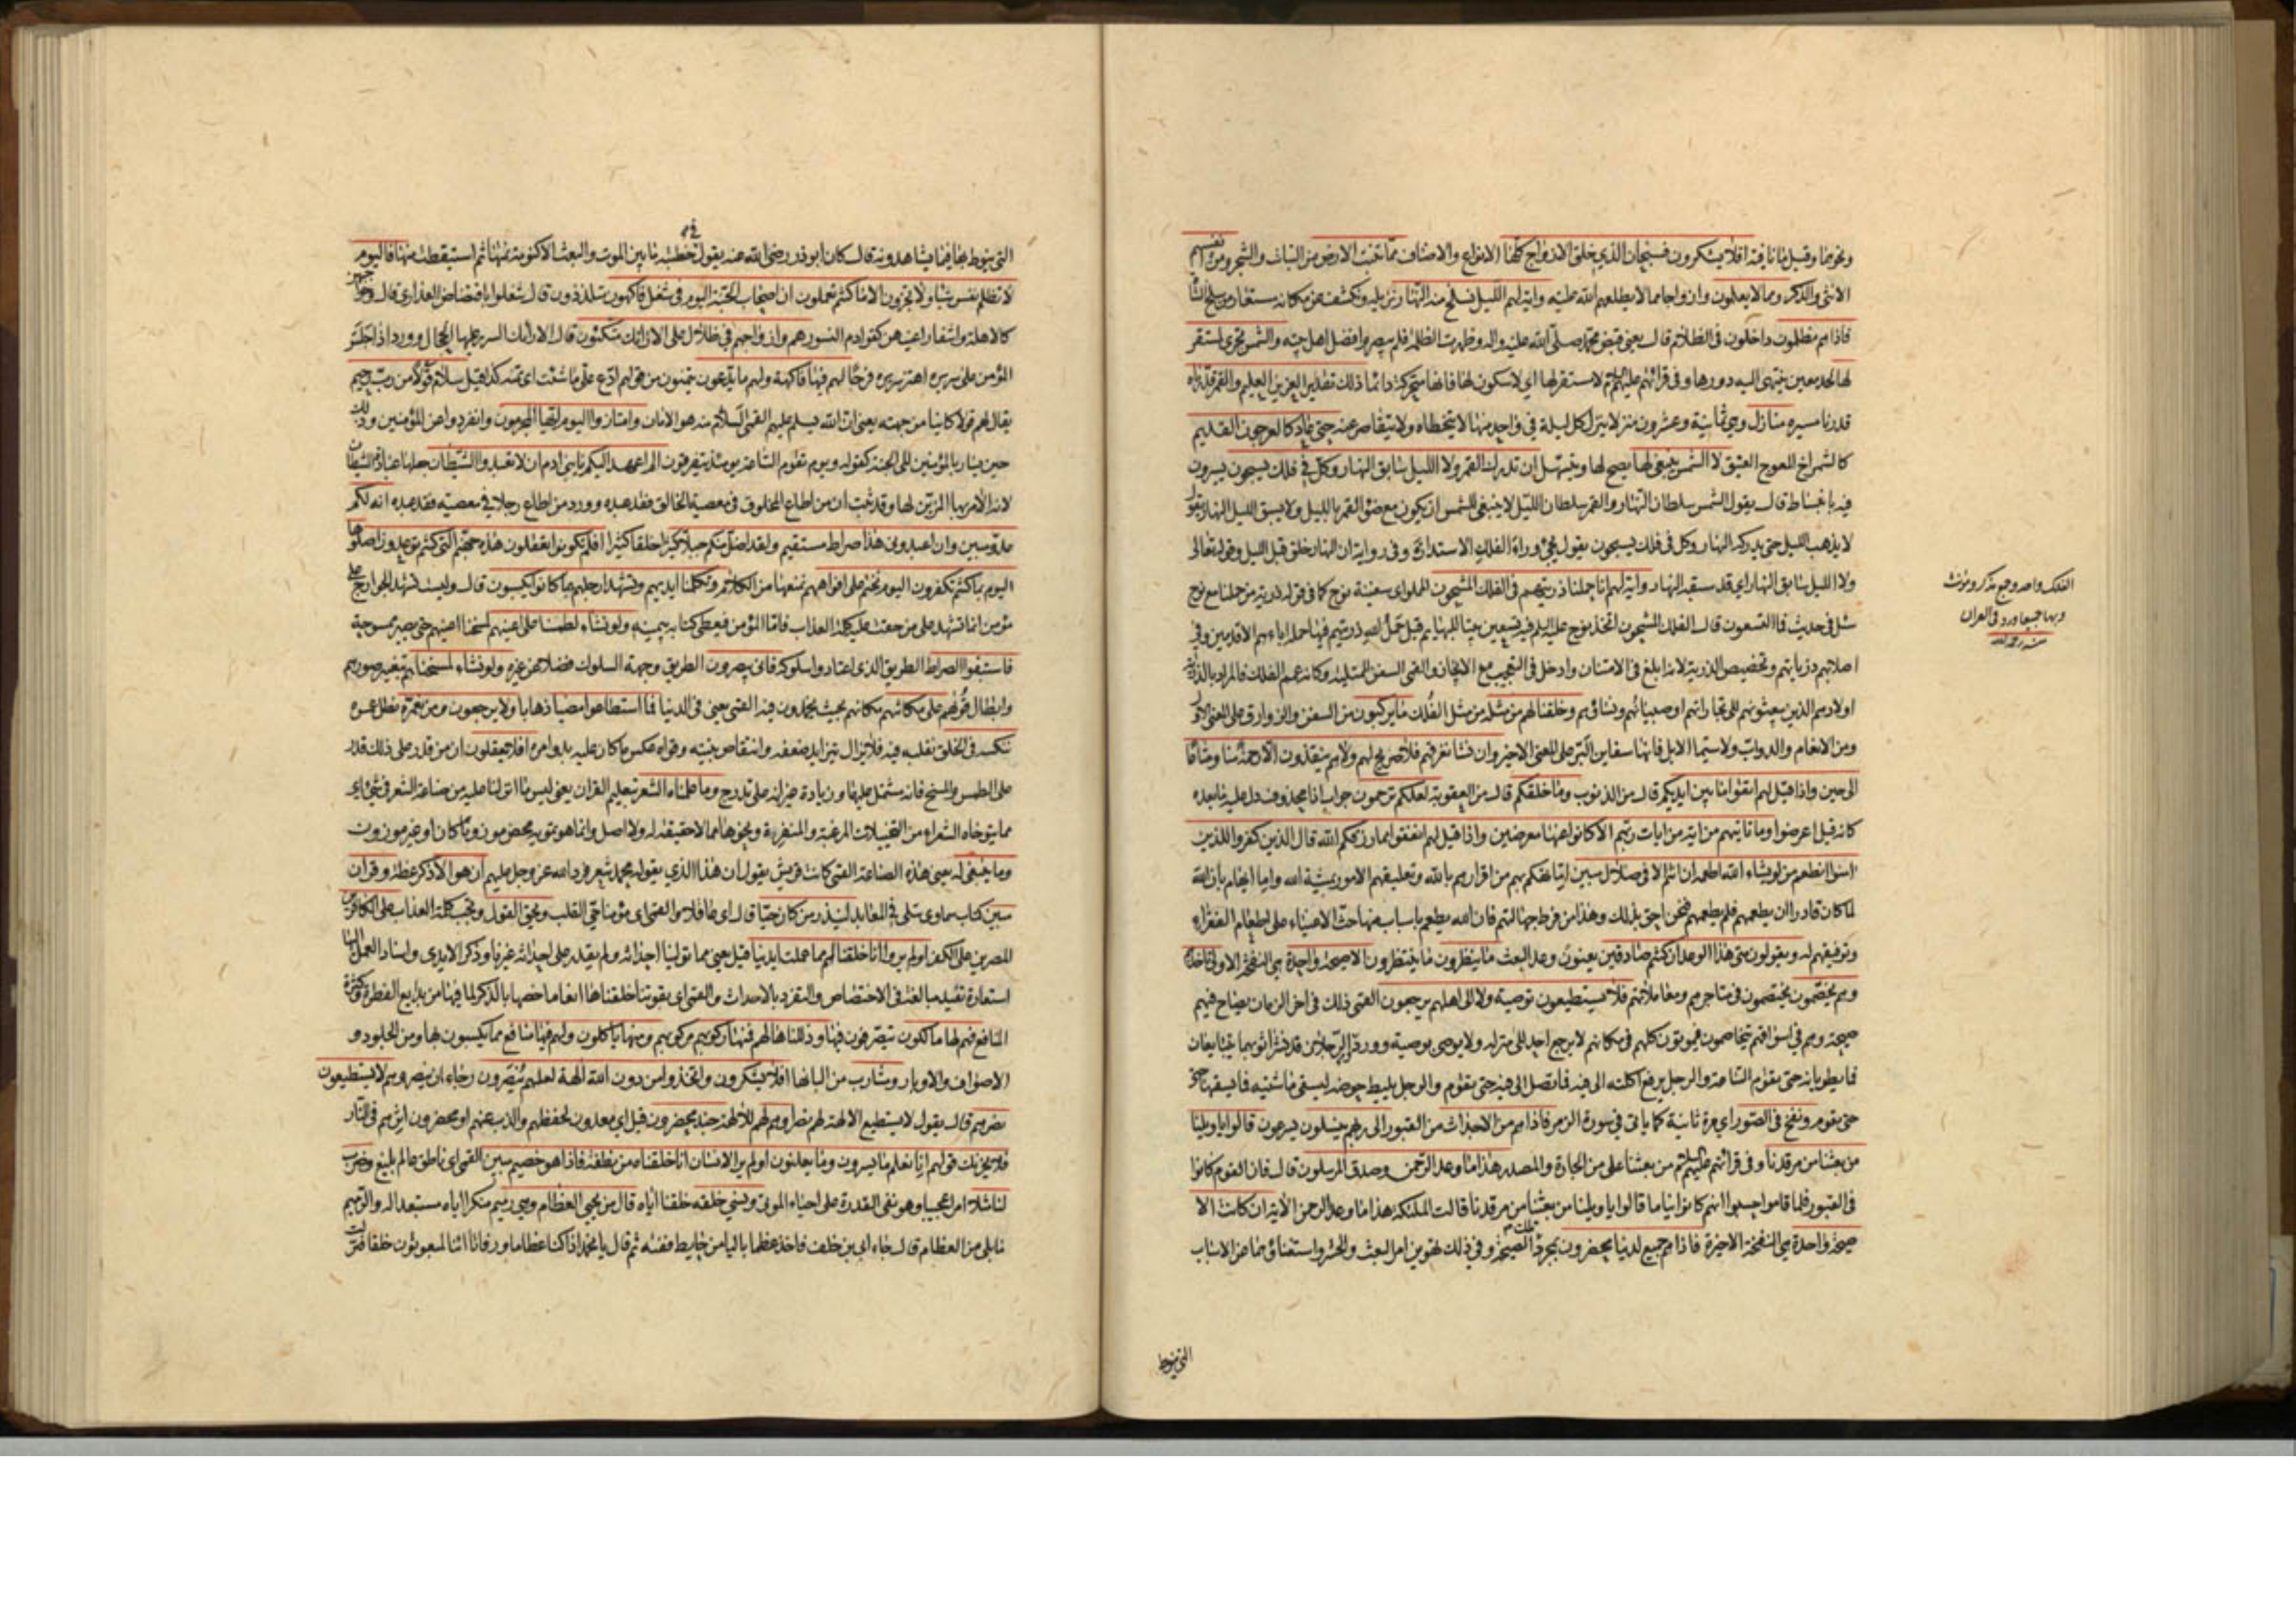 ونحوها وقيل ما نافية افلا يشكرون فسبحان الذي خلق الازواج كلها الانواع والاصناف مما تنبت الارض من النبات والشجر ومن انفسهم
الانثى والذكر ومما لا يعلمون وازواجا مما لا يطلعهم الله عليه واية لهم الليل نسلخ منه النهار نزيله ونكشف عن مكانه مستعار من سلخ الشاة
فاذا هم مظلمون داخلون في الظلام قال يعني قبض محمد صلى الله عليه واله وظهرت الظلمة فلم يبصروا فضل اهل بيته والشمس تجري لمستقر
لها لحد معين ينتهي اليه دورها وفي قرائتهم عليهم لا مستقر لها اي لا سكون لها فانها متحركة دائما ذلك تقدير العزيز العليم والقمر قدرناه
قدرنا مسيره منازل وهي ثمانية وعشرون منزلا ينزل كل ليلة في واحد منها لا يتخطاه ولا يتقاصر عنه حتى عاد كالعرجون القديم
كالشمراخ المعوج العتيق لا الشمس ينبغي لها يصح لها ويتسهل ان تدرك القمر ولا الليل سابق النهار وكل في فلك يسبحون يسيرون
فيه بانبساط قال يقول الشمس سلطان النهار والقمر سلطان الليل لا ينبغي للشمس ان يكون مع ضوء القمر بالليل ولا يسبق الليل النهار يقول
لا يذهب الليل حتى يدركه النهار وكل في فلك يسبحون يقول يجيء وراء الفلك الاستدارة وفي رواية ان النهار خلق قبل الليل وقوله تعالى
ولا الليل سابق النهار اي قد سبقه النهار واية لهم انا حملنا ذريتهم في الفلك المشحون المملو اي سفينة نوح كما في قوله ذرية من حملنا مع نوح
سئل في حديث فما التسعون قال الفلك المشحون اتخذ نوح عليه السلم فيه تسعين بيتا للبهايم قيل حمل الله ذريتهم فيها حمل اباءهم الاقدمين وفي
اصلابهم ذرياتهم وتخصيص الذرية لانه ابلغ في الامتنان وادخل في التعجب مع الايجاز والقمي السفن الممتلية وكانه عمم الفلك فالمراد بالذرية
اولادهم الذين يبعثونهم الى تجاراتهم او صبيانهم ونسائهم وخلقنا لهم من مثله من مثل الفلك ما يركبون من السفن والزوارق على المعنى الاول
ومن الانعام والدواب ولا سيما الابل فانها سفاين البر على المعنى الاخير وان نشا نغرقهم فلا صريخ لهم ولا هم ينقذون الا رحمة منا ومتاعا
الى حين واذا قيل لهم اتقوا ما بين ايديكم قال من الذنوب وما خلفكم قال من العقوبة لعلكم ترحمون جواب اذا محذوف دل عليه ما بعده
كانه قيل اعرضوا وما تاتيهم من اية من ايات ربهم الا كانوا عنها معرضين واذا قيل لهم انفقوا مما رزقكم الله قال الذين كفروا للذين
امنوا انطعم من لو يشاء الله اطعمه ان انتم الا في ضلال مبين تهكم بهم من اقرارهم بالله وتعليقهم الامور بمشية الله واما ايهام بان الله
لما كان قادرا ان يطعمهم فلم يطعمهم فنحن احق بذلك وهذا من فرط جهالتهم فان الله يطعم باسباب منها حث الاغنياء على اطعام الفقراء
وتوفيقهم له ويقولون متى هذا الوعد ان كنتم صادقين يعنون وعد البعث ما ينظرون ما ينتظرون الا صيحة واحدة هي النفخة الاولى تاخذهم
وهم يخصمون يختصمون في متاجرهم ومعاملاتهم فلا يستطيعون توصية ولا الى اهلهم يرجعون القمي ذلك في اخر الزمان يصاح فيهم
صيحة وهم في اسواقهم يتخاصمون فيموتون كلهم في مكانهم لا يرجع احد الى منزله ولا يوصي بوصية وورد الرجلان قد نشرا ثوبهما يتبايعان
فما يطويانه حتى يقوم الساعة والرجل يرفع اكلته الى فيه فما تصل الى فيه حتى يقوم والرجل يليط حوضه ليسقي ماشيته فما يسقيها حتى
حتى يقوم ونفخ في الصور اي مرة ثانية كما ياتي في سورة الزمر فاذا هم من الاجداث من القبور الى ربهم ينسلون يسرعون قالوا يا ويلنا
من بعثنا من مرقدنا وفي قرائتهم عليهم من بعثنا على من الجارة والمصدر هذا ما وعد الرحمن وصدق المرسلون قال فان القوم كانوا
في القبور فلما قاموا حسبوا انهم كانوا نياما قالوا يا ويلنا من بعثنا من مرقدنا قالت الملئكة هذا ما وعد الرحمن الاية ان كانت الا
صيحة واحدة هي النفخة الاخيرة فاذا هم جميع لدينا محضرون بمجرد تلك الصيحة وفي ذلك تهوين امر البعث والحشر واستغناؤهما عن الاسباب
التي ينوط
الفلك واحد وجمع يذكر ويؤنث
وبهما جميعا ورد في القران
منه رحمه الله
التي ينوط بها فيما يشاهدونه قال كان ابو ذر رضي الله عنه يقول في خطبته ما بين الموت والبعث الا كنومة نمتها ثم استيقظت منها فاليوم
لا تظلم نفس شيا ولا تجزون الا ما كنتم تعملون ان اصحاب الجنة اليوم في شغل فاكهون متلذذون قال شغلوا بافتضاض العذارى قال وحواجبهن
كالاهلة واشفار اعينهن كقوادم النسور هم وازواجهم في ظلال على الارائك متكئون قال الارائك السرر عليها الحجال وورد اذا جلس
المؤمن على سريره اهتز سريره فرحا لهم فيها فاكهة ولهم ما يدعون يتمنون من قولهم ادع علي ما شئت اي تمنه كذا قيل سلام قولا من رب رحيم
يقال لهم قولا كاينا من جهته يعني ان الله يسلم عليهم القمي السلام منه هو الامان وامتازوا اليوم ايها المجرمون وانفردوا عن المؤمنين وذلك
حين يسار بالمؤمنين الى الجنة كقوله ويوم تقوم الساعة يومئذ يتفرقون الم اعهد اليكم يا بني ادم ان لا تعبدوا الشيطان جعلها عبادة الشيطان
لانه الامر بها المزين لها وقد ثبت ان من اطاع المخلوق في معصية الخالق فقد عبده وورد من اطاع رجلا في معصيته فقد عبده انه لكم
عدو مبين وان اعبدوني هذا صراط مستقيم ولقد اضل منكم جبلا كثيرا خلقا كثيرا افلم تكونوا تعقلون هذه جهنم التي كنتم توعدون اصلوها
اليوم بما كنتم تكفرون اليوم نختم على افواههم نمنعها من الكلام وتكلمنا ايديهم وتشهد ارجلهم بما كانوا يكسبون قال وليست تشهد الجوارح على
مؤمن انما تشهد على من حقت عليه كلمة العذاب فاما المؤمن فيعطى كتابه بيمينه ولو نشاء لطمسنا على اعينهم لمسخنا اعينهم حتى يصير ممسوحة
فاستبقوا الصراط الطريق الذي اعتادوا سلوكه فانى يبصرون الطريق وجهة السلوك فضلا عن غيره ولو نشاء لمسخناهم بتغيير صورهم
وابطال قواهم على مكانتهم مكانهم بحيث يجمدون فيه القمي يعني في الدنيا فما استطاعوا مضيا ذهابا ولا يرجعون ومن نعمره نطل عمره
ننكسه في الخلق نقلبه فيه فلا يزال يتزايد ضعفه وانتقاص بنيته وقواه عكس ما كان عليه بدو امره افلا تعقلون ان من قدر على ذلك قدر
على الطمس والمسخ فانه مشتمل عليهما وزيادة غير انه على تدرج وما علمناه الشعر بتعليم القران يعني ليس ما انزلنا عليه من صناعة الشعر في شيء اي
مما يتوخاه الشعراء من التخييلات المرغبة والمنفرة ونحوها مما لا حقيقة له ولا اصل وانما هو تمويه محض موزونا كان او غير موزون
وما ينبغي له يعني هذه الصناعة القمي كانت قريش يقول ان هذا الذي يقوله محمد شعر فرد الله عز وجل عليهم ان هو الا ذكر عظة وقران
مبين كتاب سماوي يتلى في المعابد لينذر من كان حيا قال اي عاقلا والقمي اي مؤمنا حي القلب ويحق القول وتجب كلمة العذاب على الكافرين
المصرين على الكفر اولم يروا انا خلقنا لهم مما عملت ايدينا قيل يعني مما تولينا احداثه ولم يقدر على احداثه غيرنا وذكر الايدي واسناد العمل اليها
استعارة تفيد مبالغة في الاختصاص والتفرد بالاحداث والقمي اي بقوتنا خلقناها انعاما خصها بالذكر لما فيها من بدايع الفطرة وكثرة
المنافع فهم لها مالكون يتصرفون فيها وذللناها لهم فمنها ركوبهم مركوبهم ومنها ياكلون ولهم فيها منافع مما يكسبون بها ومن الجلود و
الاصواف والاوبار ومشارب من البانها افلا يشكرون واتخذوا من دون الله الهة لعلهم ينصرون رجاء ان ينصروهم لا يستطيعون
نصرهم قال يقول لا يستطيع الالهة لهم نصرا وهم لهم للالهة جند محضرون قيل اي معدون لحفظهم والذب عنهم او محضرون اثرهم في النار
فلا يحزنك قولهم انا نعلم ما يسرون وما يعلنون اولم ير الانسان انا خلقناه من نطفة فاذا هو خصيم مبين القمي اي ناطق عالم بليغ وضرب
لنا مثلا امرا عجيبا وهو نفي القدرة على احياء الموتى ونسي خلقه خلقنا اياه قال من يحيي العظام وهي رميم منكرا اياه مستبعدا له والرميم
ما بلي من العظام قال جاء ابي بن خلف فاخذ عظما باليا من حايط ففته ثم قال يا محمد اذا كنا عظاما ورفاتا ائنا لمبعوثون خلقا فنزلت